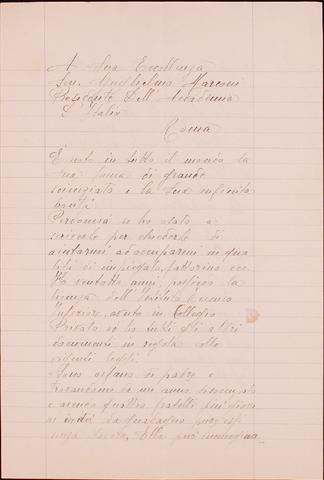 A Sua Eccellenza
Sen. Guglielmo Marconi
Presidente Dell' Accademia
D'Italia
Roma
È noto in tutto il mondo la
sua fama di grande
scienziato e la sua infinita
bontà
Perdonerà se ho osato a
scriverle per chiederle di
aiutarmi ad occuparmi in qua
lità di impiegato, fattorino ecc.
Ho ventotto anni, posseggo la
licenza dell' Istituto Tecnico
Inferiore, avuto in Collegio
Privato ed ho tutti gli altri
documenti in regola colle
vigenti leggi.
Sono orfano di padre e
trovandomi da un anno disoccupato
e avendo quattro fratelli più giova
ni senza lavoro, Ella può immaginare